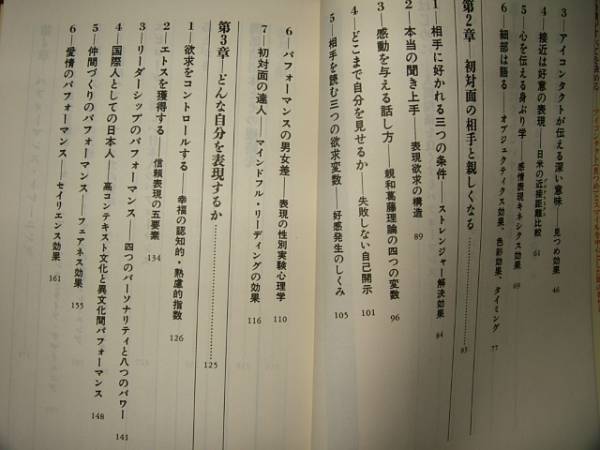 3―アイコンタクトが伝える深い意味―見つめ効果 46
4―接近は好意の表現―日米の近接距離比較 61
5―心を伝える身ぶり学―感情表現キネシクス効果 69
6―細部は語る―オブジェクティクス効果、色彩効果、タイミング 77
第2章 初対面の相手と親しくなる 83
1 相手に好かれる三つの条件 ストレンジャー解決効果 84
2―本当の聞き上手―表現欲求の構造 89
3―感動を与える話し方―親和葛藤理論の四つの変数 96
4―どこまで自分を見せるか―失敗しない自己開示 101
5―相手を読む三つの欲求変数―好感発生のしくみ 105
6―パフォーマンスの男女差―表現の性別実験心理学 110
7―初対面の達人―マインドフル・リーディングの効果 116
第3章―どんな自分を表現するか 125
1―欲求をコントロールする―幸福の認知的・熟慮的指数 126
2―エトスを獲得する―信頼表現の五要素 134
3―リーダーシップのパフォーマンス―四つのパーソナリティと八つのパワー 141
4―国際人としての日本人―高コンテキスト文化と異文化間パフォーマンス 148
5―仲間づくりのパフォーマンス―フェアネス効果 155
6―愛情のパフォーマンス―セイリエンス効果 161